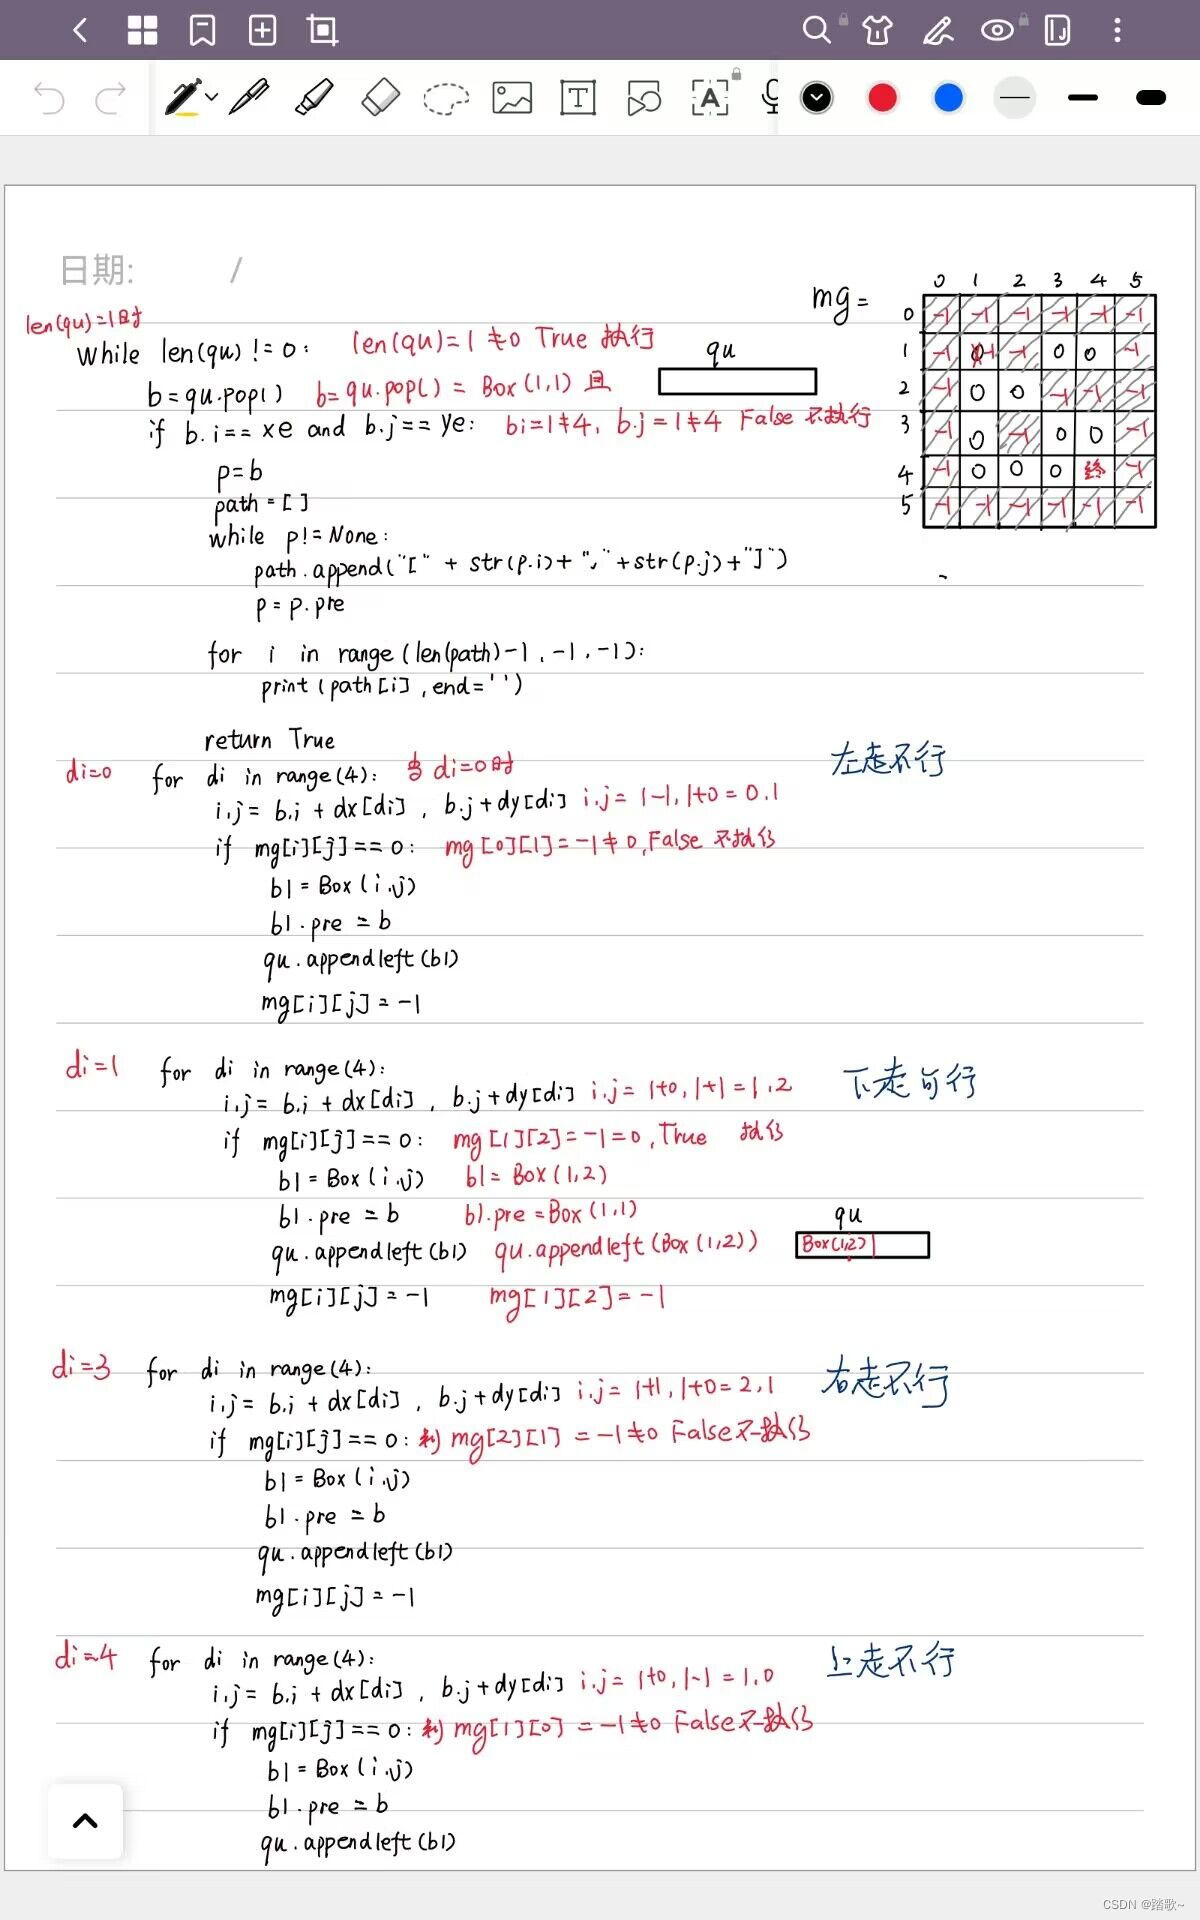 日期: /
mg=
0 1 2 3 4 5
0 -1 -1 -1 -1 -1 -1
1 -1 -1 -1 0 0 -1
2 -1 0 0 -1 -1 -1
3 -1 0 -1 0 0 -1
4 -1 0 0 0 终 -1
5 -1 -1 -1 -1 -1 -1
len(qu)=1时
While len(qu) != 0: len(qu)=1≠0 True 执行
qu
b=qu.pop() b=qu.pop() = Box(1,1) 且
if b.i== xe and b.j== ye: bi=1≠4, b.j=1≠4 False 不执行
p=b
path=[]
while p!=None:
path.append("[" + str(p.i)+ "," +str(p.j)+"]")
p=p.pre
for i in range(len(path)-1,-1,-1):
print(path[i],end='')
return True
di=0 for di in range(4): 当di=0时 左走不行
i,j= b.i + dx[di] , b.j+dy[di] i.j= 1-1,1+0=0.1
if mg[i][j]==0: mg[0][1]=-1≠0,False 不执行
b1=Box(i,j)
b1.pre =b
qu.appendleft(b1)
mg[i][j]=-1
di=1 for di in range(4): 下走可行
i,j= b.i + dx[di] , b.j+dy[di] i.j= 1+0,1+1=1.2
if mg[i][j]==0: mg[1][2]=-1=0,True 执行
b1=Box(i,j) b1=Box(1,2)
b1.pre =b b1.pre=Box(1,1)
qu
qu.appendleft(b1) qu.appendleft(Box(1,2)) Box(1,2)
mg[i][j]=-1 mg[1][2]=-1
di=3 for di in range(4): 右走不行
i,j= b.i + dx[di] , b.j+dy[di] i.j= 1+1,1+0=2,1
if mg[i][j]==0: mg[2][1] =-1≠0 False不执行
b1=Box(i,j)
b1.pre =b
qu.appendleft(b1)
mg[i][j]=-1
di=4 for di in range(4): 上走不行
i,j= b.i + dx[di] , b.j+dy[di] i.j= 1+0,1-1=1.0
if mg[i][j]==0: mg[1][0] =-1≠0 False不执行
b1=Box(i,j)
b1.pre =b
qu.appendleft(b1)
CSDN @踏歌~